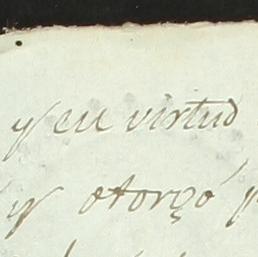 y en virtud
y otorgó